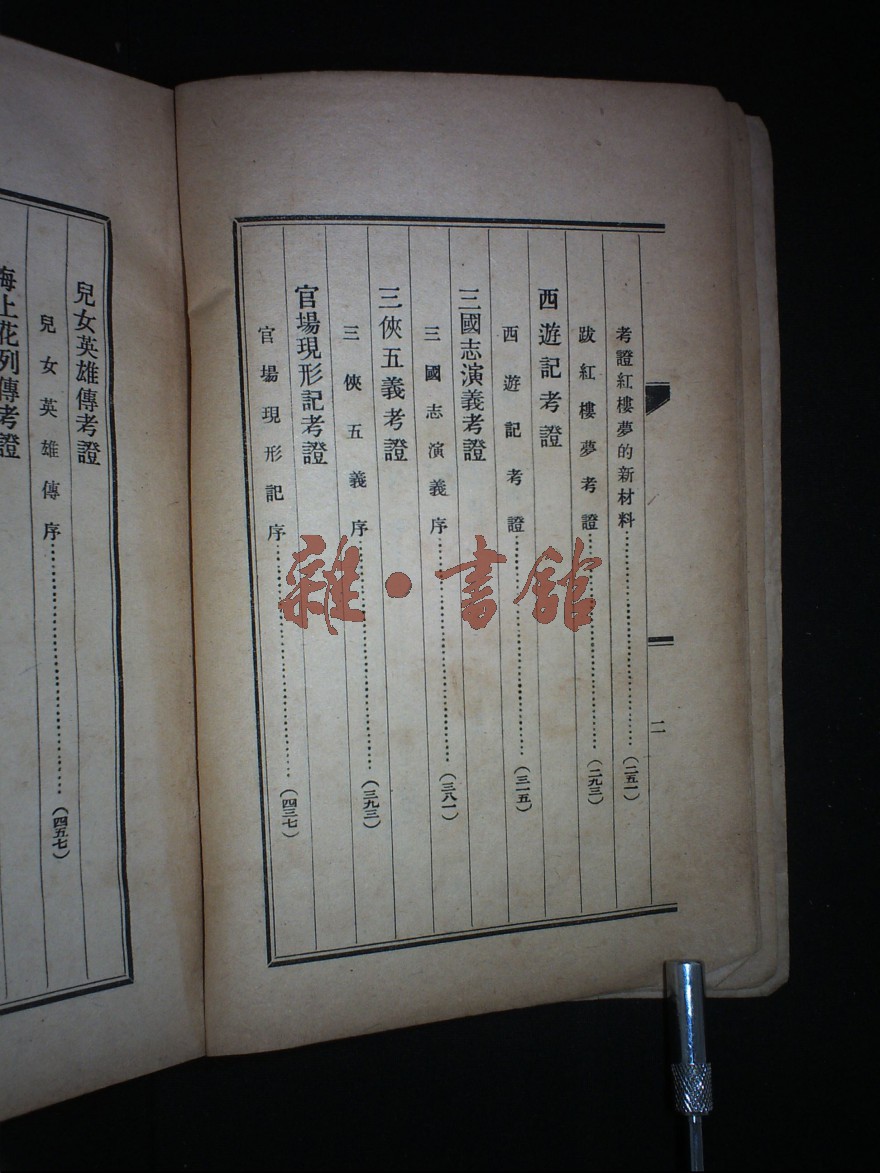 考證紅樓夢的新材料……(二五一)
跋紅樓夢考證……(二九三)
西遊記考證
西遊記考證……(三一五)
三國志演義考證
三國志演義序……(三八一)
三俠五義考證
三俠五義序……(三九三)
官場現形記考證
官場現形記序……(四三七)
二
兒女英雄傳考證
兒女英雄傳序……(四五七)
海上花列傳考證
雜·書館